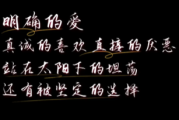 明确的爱
真诚的喜欢 直接的厌恶
站在太阳下的坦荡
还有被坚定的选择